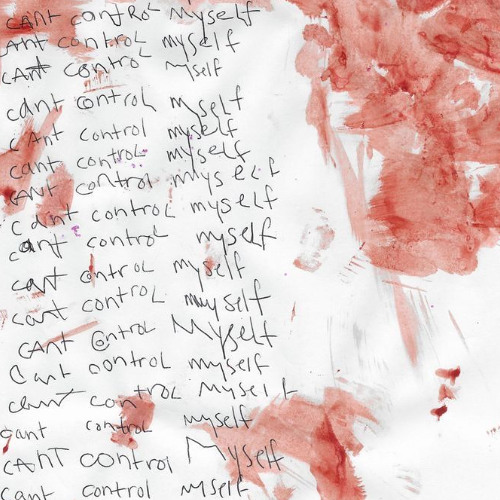 cANt contRoL Myself
ANt controL myself
cANt control Myself
cant controL myself
cAnt control myself
cant control myself
cANt control myself
cant control myself
cant control myself
cant controL myself
cant controL myself
cANt controL Myself
Cant control myself
cant control Myself
cant control myself
cANT control Myself
cant control myself